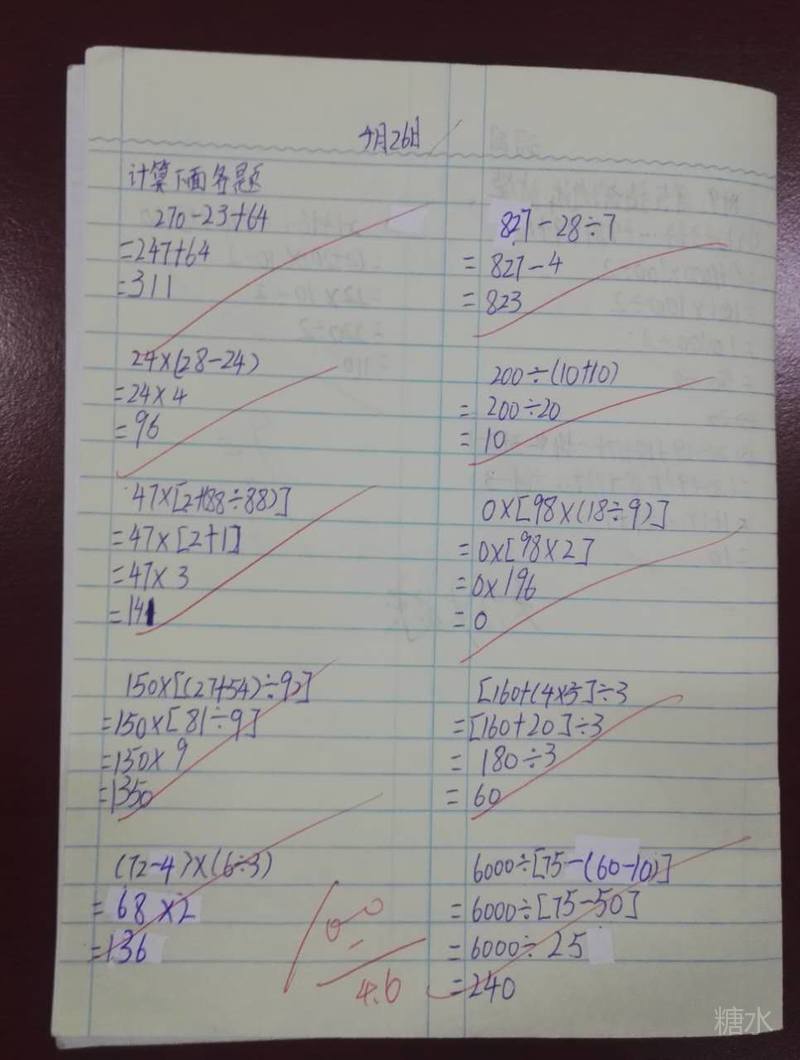 4月26日
计算下面各题
270-23+64
=247+64
=311
827-28÷7
=827-4
=823
24×(28-24)
=24×4
=96
200÷(10+10)
=200÷20
=10
47×[2+88÷88)]
=47×[2+1]
=47×3
=141
0×[98×(18÷9)]
=0×[98×2]
=0×196
=0
150×[(27+54)÷9]
=150×[81÷9]
=150×9
=1350
[160+(4×5]÷3
=[160+20]÷3
=180÷3
=60
(72-4)×(6÷3)
=68×2
=136
6000÷[75-(60-10)]
=6000÷[75-50]
=6000÷25
=240
100
4.6
糖水